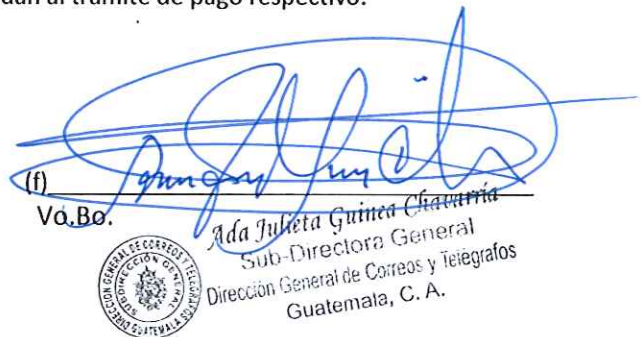 al trámite de pago respectivo.
(f)
Vo.Bo.
Ada Julieta Guinea Chavarría
Sub-Directora General
Dirección General de Correos y Telégrafos
Guatemala, C. A.
DIRECCIÓN GENERAL DE CORREOS Y TELÉGRAFOS
SUBDIRECCIÓN GENERAL
GUATEMALA